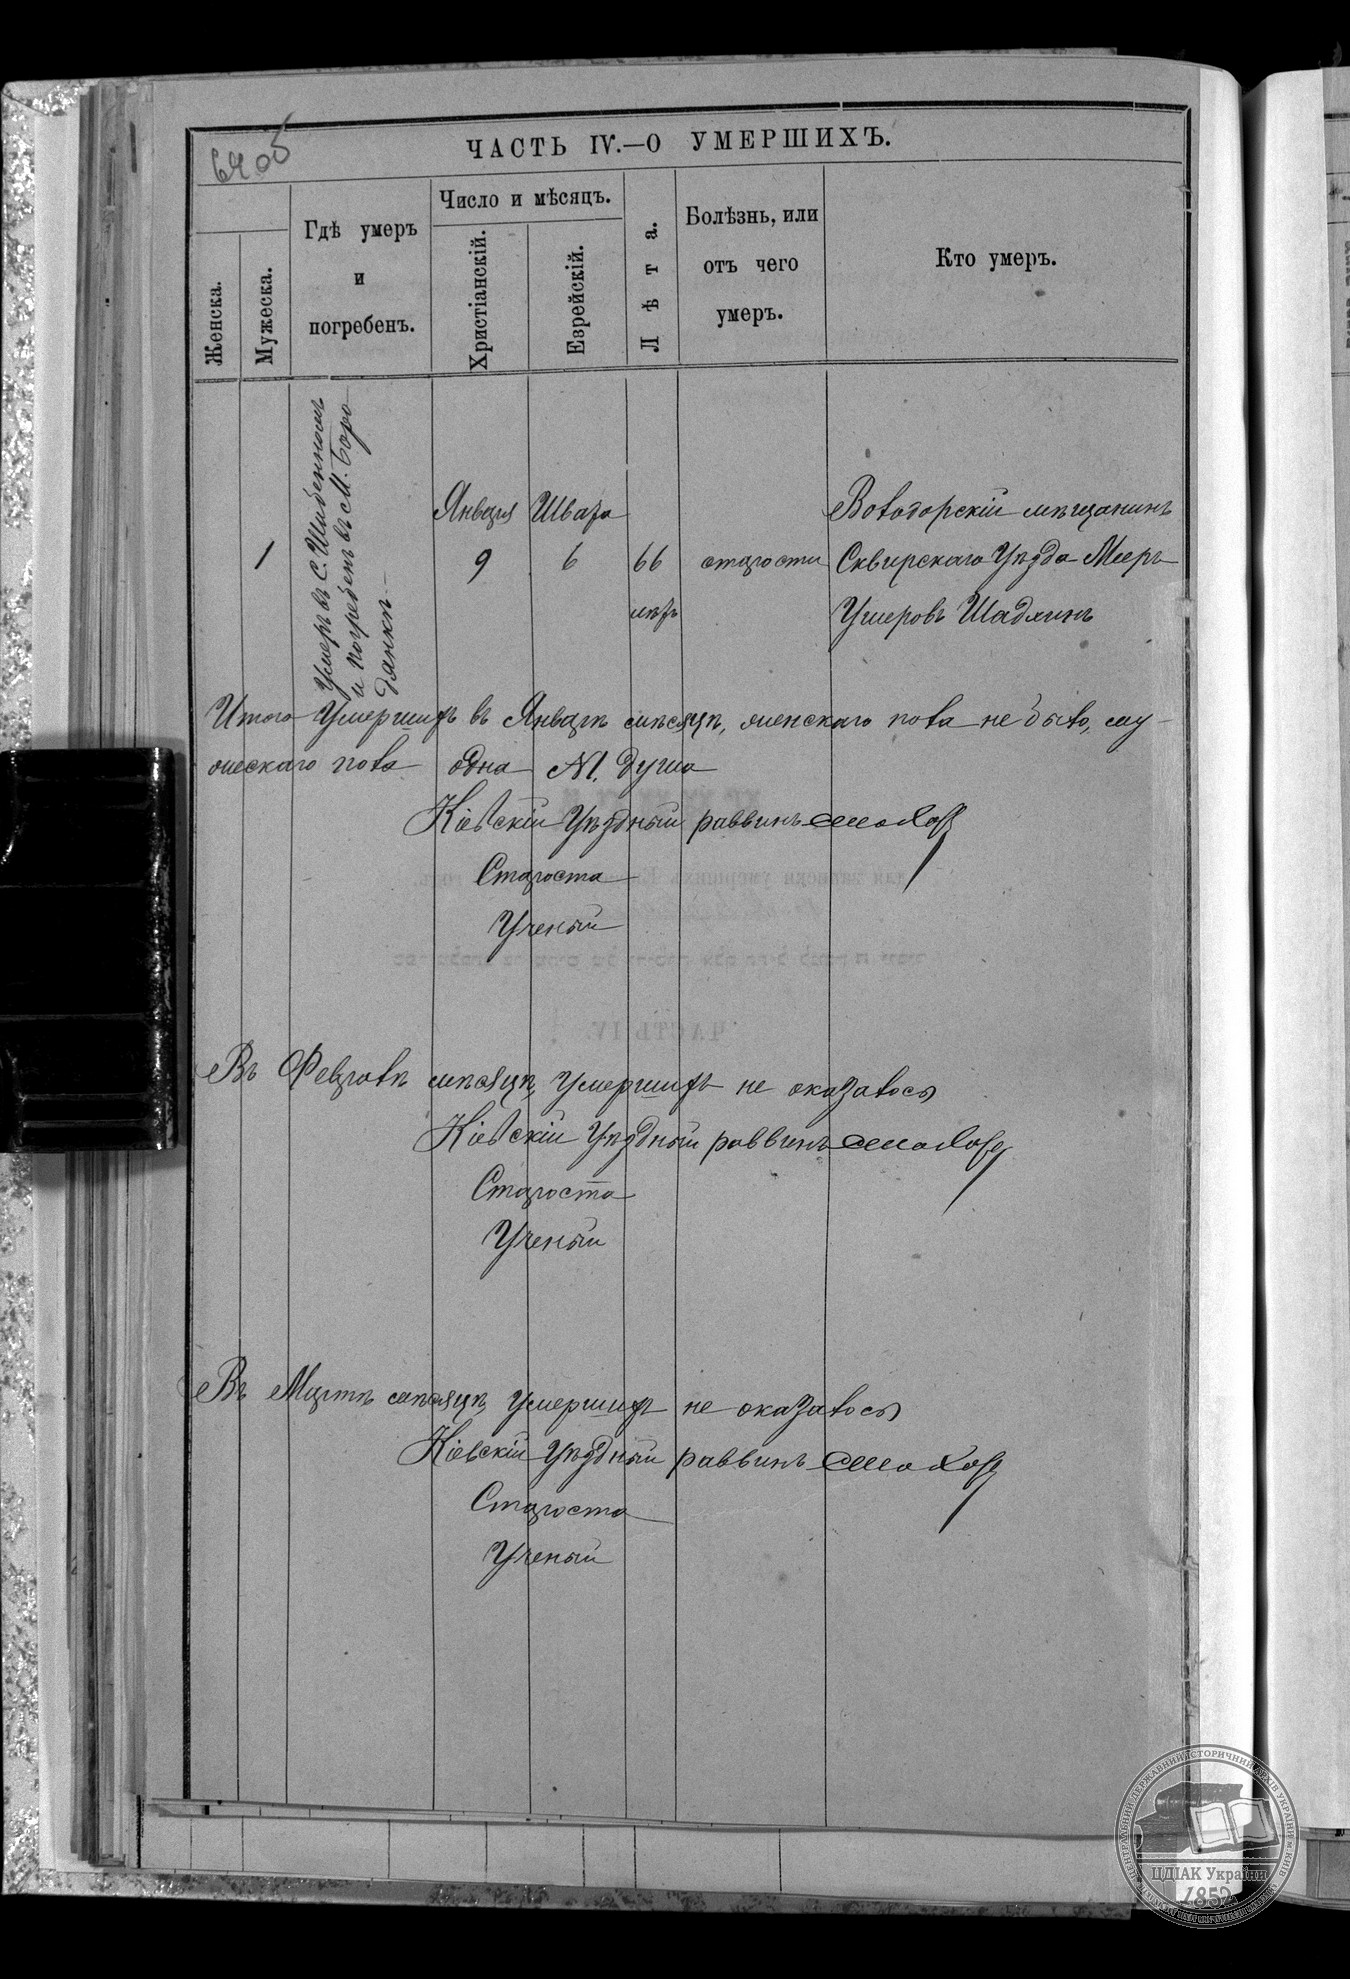 6905
ЧАСТЬ IV.—О УМЕРШИХЪ.
Женска.
Мужеска.
Гдѣ умеръ
и
погребенъ.
Число и мѣсяцъ.
Христіанскій.
Еврейскій.
Лѣта.
Болѣзнь, или
отъ чего
умеръ.
Кто умеръ.
1
Умеръ въ С. Шибенномъ
и погребенъ въ М. Боро-
дянкѣ
Января
9
Швата
6
66
лѣтъ
старости
Володарскій мѣщанинъ
Сквирскаго Уѣзда Мееръ
Ушеровъ Шадхинъ
Итого Умершихъ въ Январѣ мѣсяцѣ, женскаго пола не было, му-
жескаго пола одна №1. душа
Кіевскій Уѣздный раввинъ
Староста
Ученый
Въ Февралѣ мѣсяцѣ Умершихъ не оказалось
Кіевскій Уѣздный раввинъ
Староста
Ученый
Въ Мартѣ мѣсяцѣ Умершихъ не оказалось
Кіевскій Уѣздный раввинъ
Староста
Ученый
ЧАСТЬ IV.
ЦЕНТРАЛЬНИЙ ДЕРЖАВНИЙ ІСТОРИЧНИЙ АРХІВ УКРАЇНИ М.КИЇВ
ЦДІАК України
1852